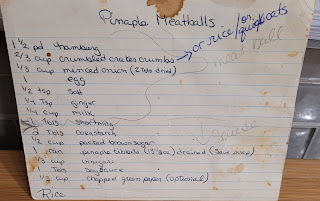 Pinapla Meatballs
1 1/2 pd hamburg
2/3 cup crumbled craker crumbs → or rice/or quick oats
1/3 cup minced onion (2 Tbls dried)
egg
1/2 tsp salt
1/4 Tsp ginger
1/4 cup milk
1 Tbls shortning
2 Tbls cornstarch
1/2 cup packed brown sugar
1 can pinapla tidbits drained (save syrup)
1/3 cup vinegar
1 Tbls Soy sauce
1/3 cup chopped green peper (optional)
Rice
meat ball
Sauce